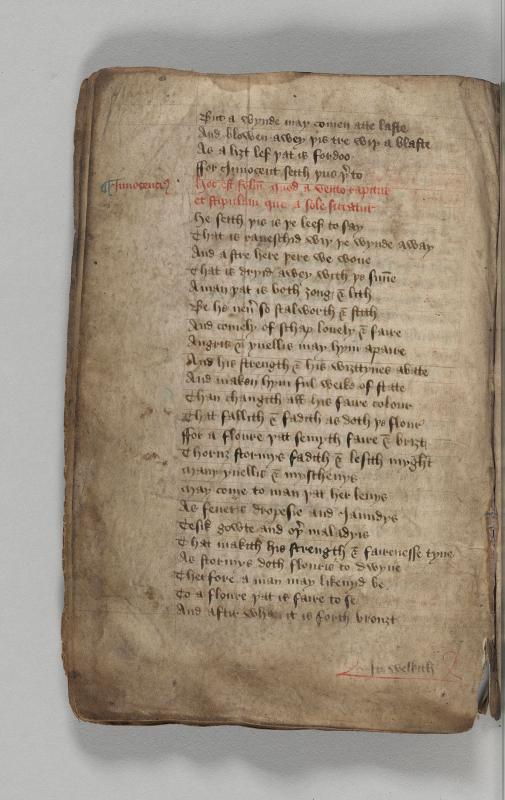 But a wynde may comen atte laste
And blowen awey þis tre wiþ a blaste
As a liʒt lef þat is fordoo
ffor Innocent seith þus þerto
Innocencius
hoc est folium quod a vento rapitur
et stipulam que a sole siccatur
He seith þis is þe leef to say
That is raueschid wiþ þe wynde away
And a stre here þere we woue
That is dryid awey with þe sunne
A man þat is both ʒong & lith
Be he neuer so stalworth & stith
And comely of schap louely & faire
Angris & yuellis may hym apaire
And his strength & his wiʒttynes abate
And maken hym ful weike of state
Than changith all his faire colour
That fallith & fadith as doth þe flour
ffor a floure þat semyth faire & briʒt
Thoruʒ stormys fadith & lesith myght
Many yuellis & myscheuys
May come to man þat her leuys
As feueris dropesie and Jaundys
Tesik gowte and oþer maladyis
That makith his strength & fairenesse tyne
As stormys doth flouris to dwyne
Therfore a man may likenyd be
To a floure þat is faire to se
And aftir whan it is forth brouʒt
welkith